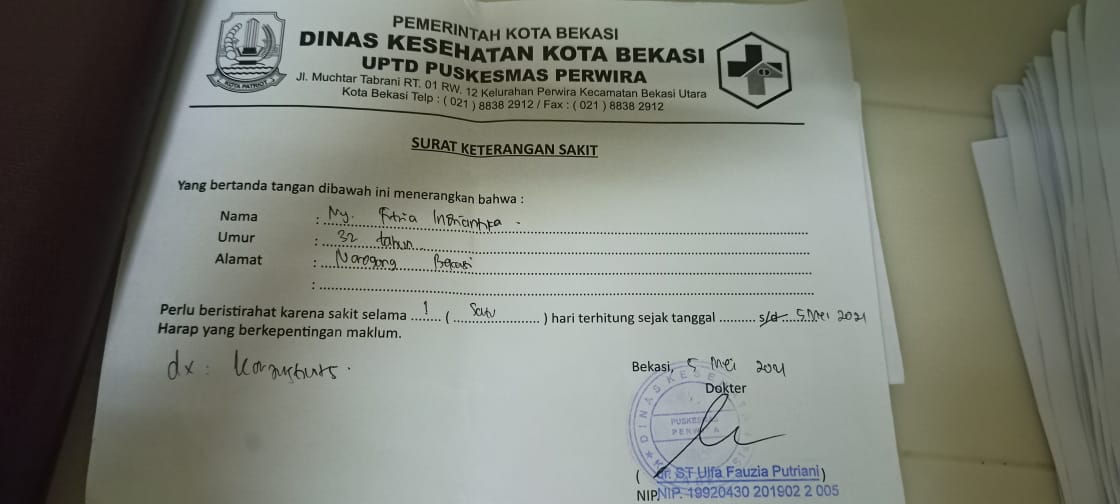 PEMERINTAH KOTA BEKASI
DINAS KESEHATAN KOTA BEKASI
UPTD PUSKESMAS PERWIRA
Jl. Muchtar Tabrani RT. 01 RW. 12 Kelurahan Perwira Kecamatan Bekasi Utara
Kota Bekasi Telp : ( 021 ) 8838 2912 / Fax : ( 021 ) 8838 2912
KOTA PATRIOT
SURAT KETERANGAN SAKIT
Yang bertanda tangan dibawah ini menerangkan bahwa :
Nama : Ny. Fitria
Umur : 32 tahun
Alamat : Narogong Bekasi
:
Perlu beristirahat karena sakit selama 1 ( Satu ) hari terhitung sejak tanggal .......... s/d 5 Mei 2021
Harap yang berkepentingan maklum.
dx :
Bekasi, 5 Mei 2021
Dokter
DINAS KESE
PUSKES
PERW A
( dr. ST Ulfa Fauzia Putriani )
NIP. NIP. 19920430 201902 2 005